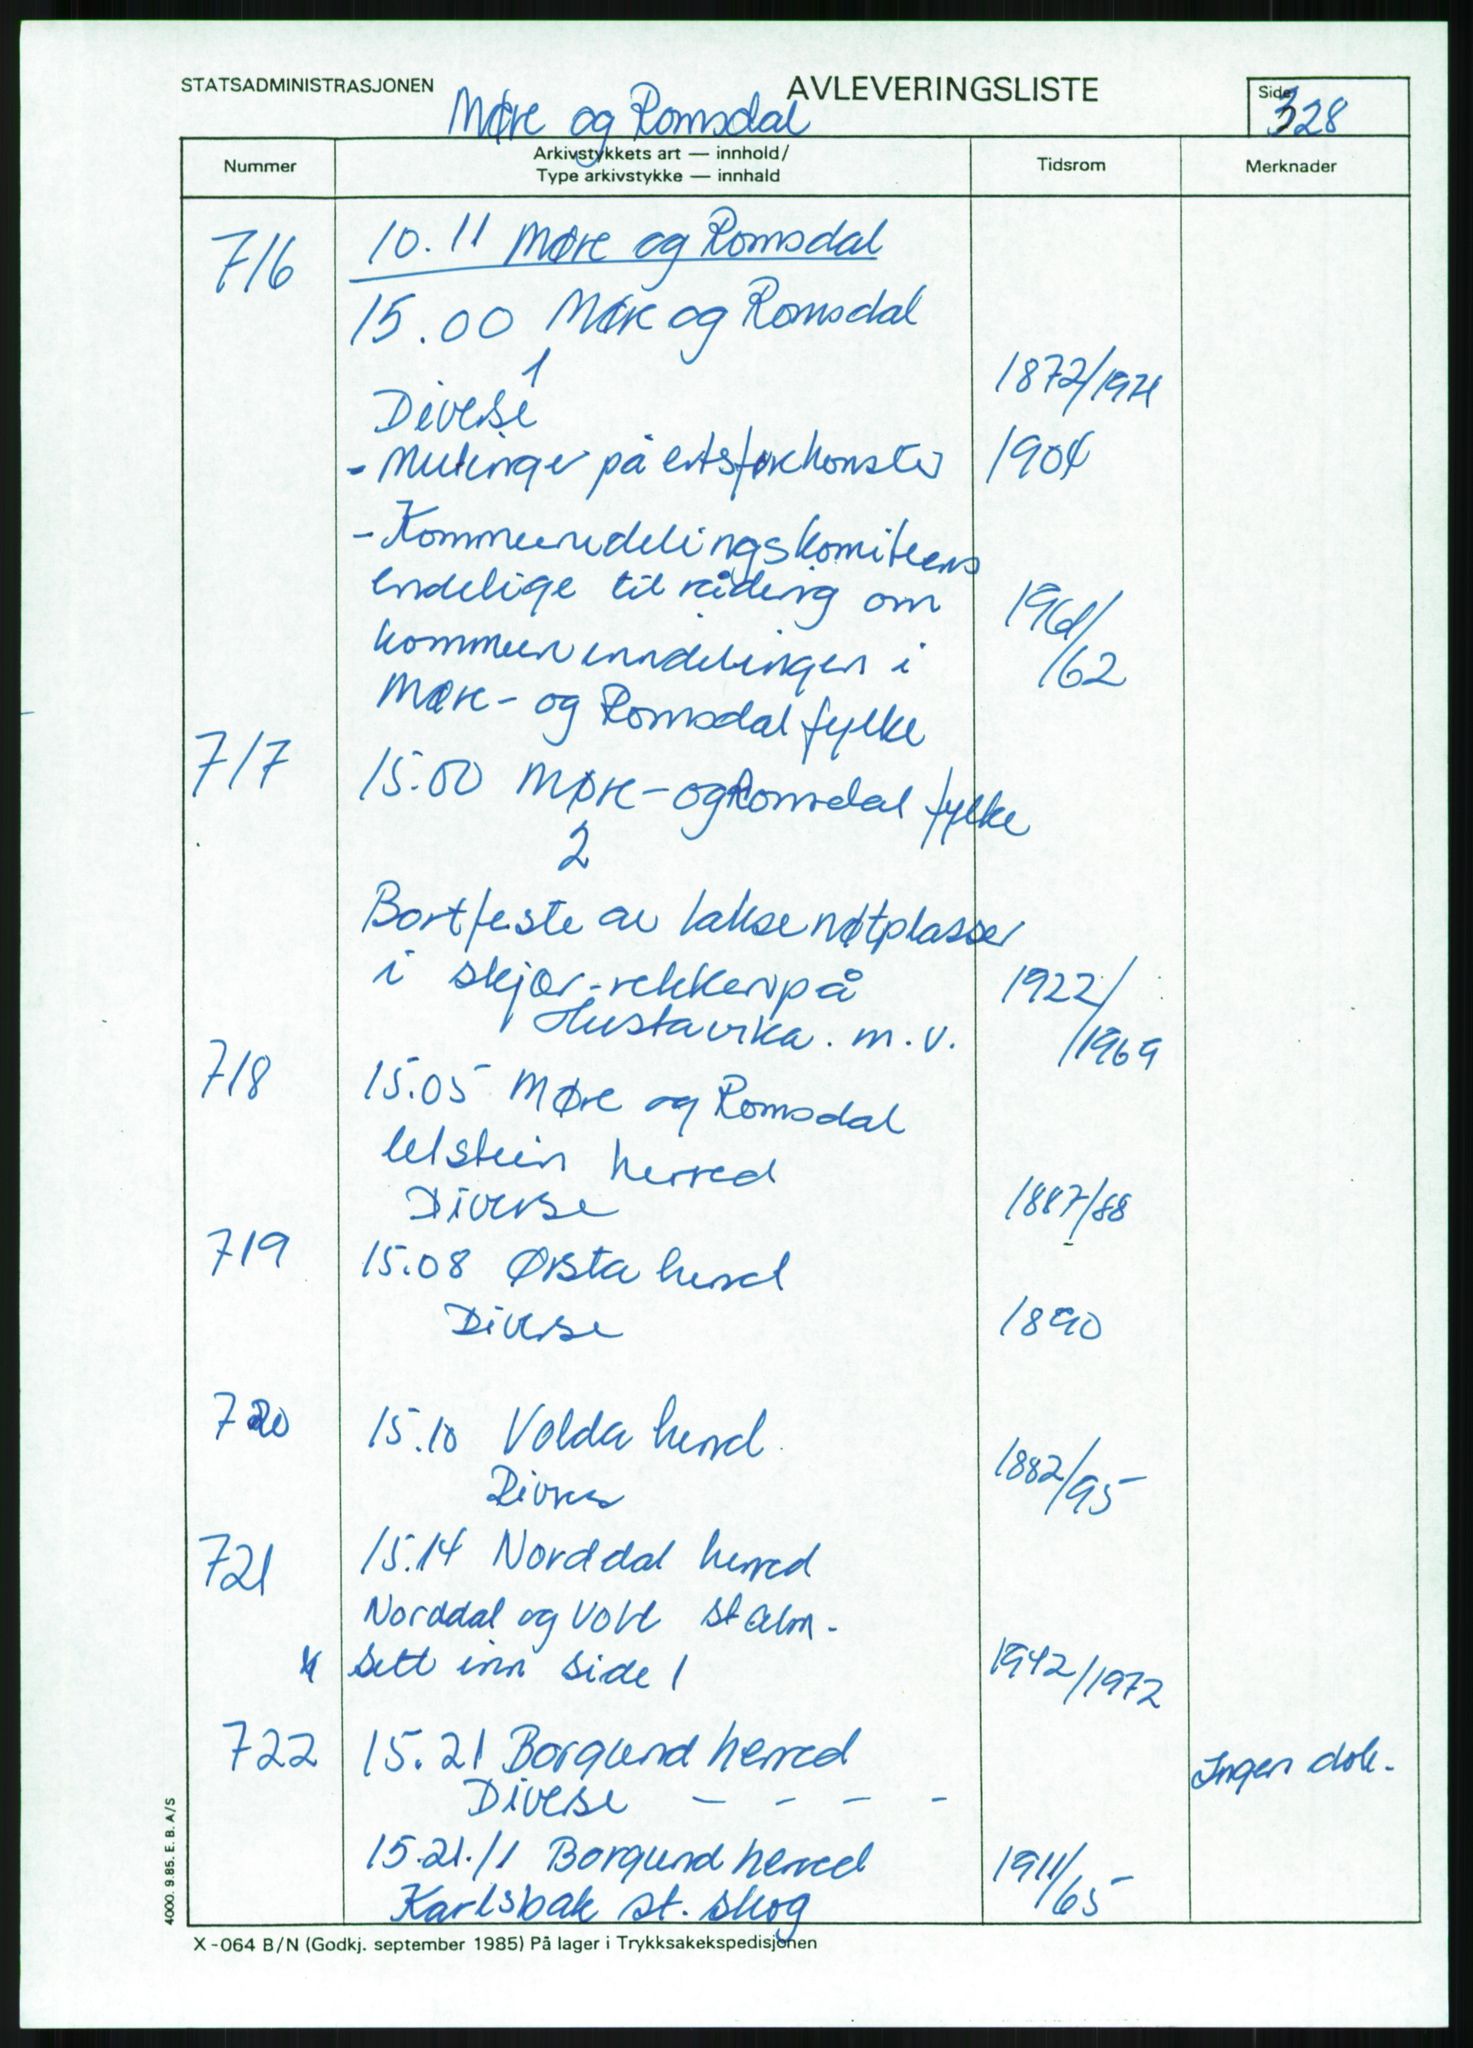 STATSADMINISTRASJONEN
AVLEVERINGSLISTE
Side
328
Møre og Romsdal
Nummer
Arkivstykkets art — innhold/
Type arkivstykke — innhald
Tidsrom
Merknader
716
10.11 Møre og Romsdal
15.00 Møre og Romsdal
1
Diverse
1872/1971
- Mutinger på ertsforkomster
1904
- Kommuneinndelingskomiteens
endelige tilråding om
kommuneinndelingen i
Møre- og Romsdal fylke
1961/
/62
717
15.00 Møre- og Romsdal fylke
2
Bortfeste av laksenøtplasser
i skjær-rekken på
Hustavika. m.v.
1922/
/1969
718
15.05 Møre og Romsdal
Ulstein herred
Diverse
1887/88
719
15.08 Ørsta herred
Diverse
1890
720
15.10 Volda herred
Diverse
1882/95
721
15.14 Norddal herred
Norddal og st. alm.
sett inn side 1
1942/1972
722
15.21 Borgund herred
Diverse - - - -
Ingen dok.
15.21./1 Borgund herred
Karlsbak st. skog
1911/65
4000. 9.85. E. B. A/S
X-064 B/N (Godkj. september 1985) På lager i Trykksakekspedisjonen